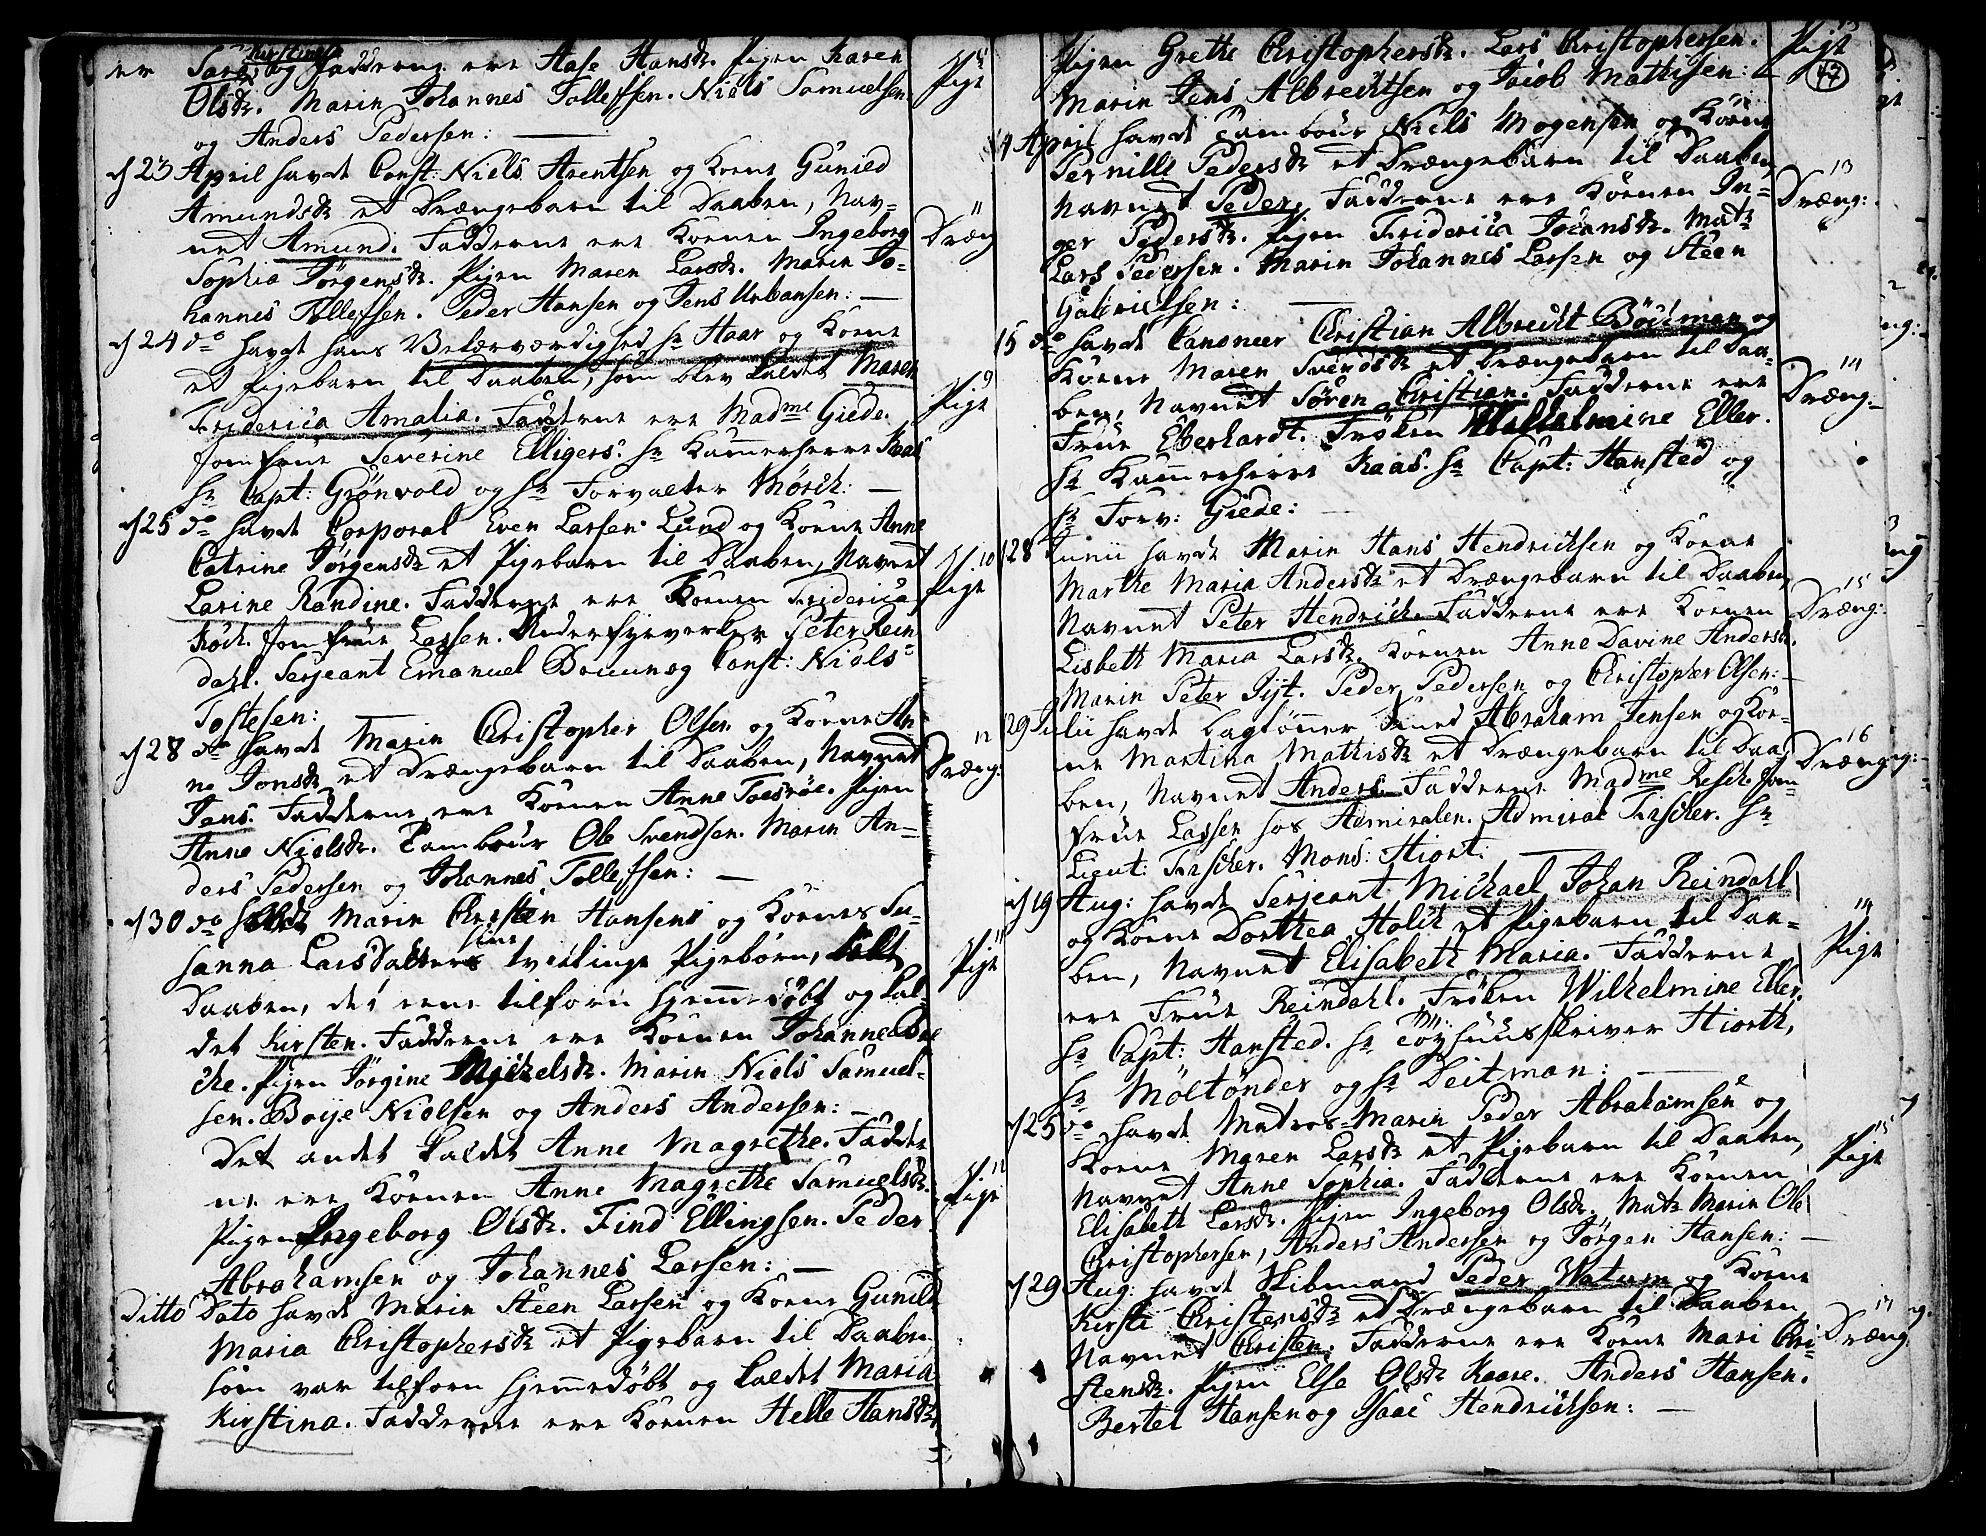 Kirstine
er Sara, og Fadderne ere Aase Hansdr. Pigen Karen
Olsdr. Marin Johannes Tollefsen. Niels Samuelsen
og Anders Pedersen: —
Pige
d 23 April havde Const: Niels Arentsen og Kone Gunild
Amundsdr et Drængebarn til Daaben, Nav-
net Amund. Fadderne ere Konen Ingeborg
Sophia Jörgensdr. Pigen Maren Larsdr. Marin Jo-
hannes Tollefsen. Peder Hansen og Jens Urbansen: —
11
Dræng
d 24 do havde hans Velærværdighed Hr Haar og Kone
et Pigebarn til Daaben, som blev kaldet Maren
Friderica Amalia. Fadderne ere Madme Giede.
Jomfrue Severine Elligers. Hr Kammerherre Kaas
Hr Capt: Grönvold og Hr Forvalter Mörch: —
9
Pige
d 25 do havde Corporal Even Larsen Lund og Kone Anne
Catrine Jörgensdr et Pigebarn til Daaben, Navnet
Larine Randine. Fadderne ere Konen Friderica
Koch. Jomfrue Lassen. Underfyrverker Peter Rein
dahl. Serjeant Emanuel Bruun og Const: Niels
Toftesen: —
10
Pige
d 28 do havde Marin Christopher Olsen og Kone An-
ne Jonsdr et Drængebarn til Daaben, Navnet
Jens. Fadderne ere Konen Anne . Pigen
Anne Nielsdr. Tambour Ole Svendsen. Marin An-
ders Pedersen og Johannes Tollefsen: —
12
Dræng:
d 30 do havde Marin Christen Hansens og Kones Su-
sanna Larsdatters sine tvillinge Pigebörn,
Daaben, det eene tilforn hjemmedöbt og kal-
det Kirsten. Fadderne ere Konen Johanne
cke. Pigen Jörgine Michelsdr. Marin Niels Samuel-
sen. Boije Nielsen og Anders Andersen: —
11
Pige
Det andet kaldet Anne Magrethe. Fadder
ne ere Konen Anne Magrethe Samuelsdr.
Pigen Ingeborg Olsdr. Find Ellingsen. Peder
Abrahamsen og Johannes Larsen: —
12
Pige
Ditto Dato havde Marin Steen Larsen og Kone Gunild
Maria Christophersdr et Pigebarn til Daaben
som var tilforn hjemmedöbt og kaldet Maria
Kirstina. Fadderne ere Konen Helle Hansdr
47
Pigen Grethe Christophersdr. Lars Christophersen.
Marin Jens Albrechtsen og Jacob Mathisen: —
13
Pige
April havde Tambour Niels Mogensen og Kone
Pernille Pedersdr et Drængebarn til Daaben
Navnet Peder. Fadderne ere Konen In-
ger Pedersdr. Pigen Friderica Johansdr. Matr
Lars Pedersen. Marin Johannes Larsen og Steen
Gabrielsen: —
13
Dræng:
15 do havde Canoneer Christian Albrecht Bödiman og
Kone Maren Svendsdr et Drængebarn til Daa-
ben, Navnet Sören Christian. Fadderne ere
Frue Eberhardt. Fröken Wilhelmine Eller.
Hr Kammerherre Kaas. Hr Capt: Hansted og
Hr Forv: Giede: —
14
Dræng:
28 Junii havde Marin Hans Hendrichsen og Kone
Marthe Maria Andersdr et Drængebarn til Daaben
Navnet Peter Hendrich. Fadderne ere Konen
Lisbeth Maria Larsdr. Konen Anne Davine Andersdr.
Marin Peter Syt. Peder Pedersen og Christopher Olsen: —
15
Dræng:
29 Julii havde Bagtönner Svend Abraham Jensen og Ko-
ne Martina Mattisdr et Drængebarn til Daa-
ben, Navnet Anders. Fadderne Madme Resch. Jom-
frue Lassen hos Admiralen. Admiral Fischer. Hr
Lieut: Fischer. Mons: Hiort: —
16
Dræng:
d 19 Aug: havde Serjeant Michael Johan Reindahl
og Kone Dorthea Holst et Pigebarn til Daa-
ben, Navnet Elisabeth Maria. Fadderne
ere Frue Reindahl. Fröken Wilhelmine Eller.
Hr Capt: Hansted. Hr Töyhuusskriver Hiorth,
Hr Möltönder og Hr Deitman: —
14
Pige
d 25 do havde Matros-Marin Peder Abrahamsen og
Kone Maren Larsdr et Pigebarn til Daaben,
Navnet Anne Sophia. Fadderne ere Konen
Elisabeth Larsdr. Pigen Ingeborg Olsdr. Matr Marin Ole
Christophersen, Anders Andersen og Jörgen Hansen: —
15
Pige
d 29 Aug: havde Skibmand Peder Watum og Kone
Kirsti Christensdr et Drængebarn til Daaben
Navnet Christen. Fadderne ere Kone Mari Chri-
stensdr. Pigen Else Olsdr Kaare. Anders Hansen.
Bertel Hansen og Isaac Hendrichsen: —
17
Dræng